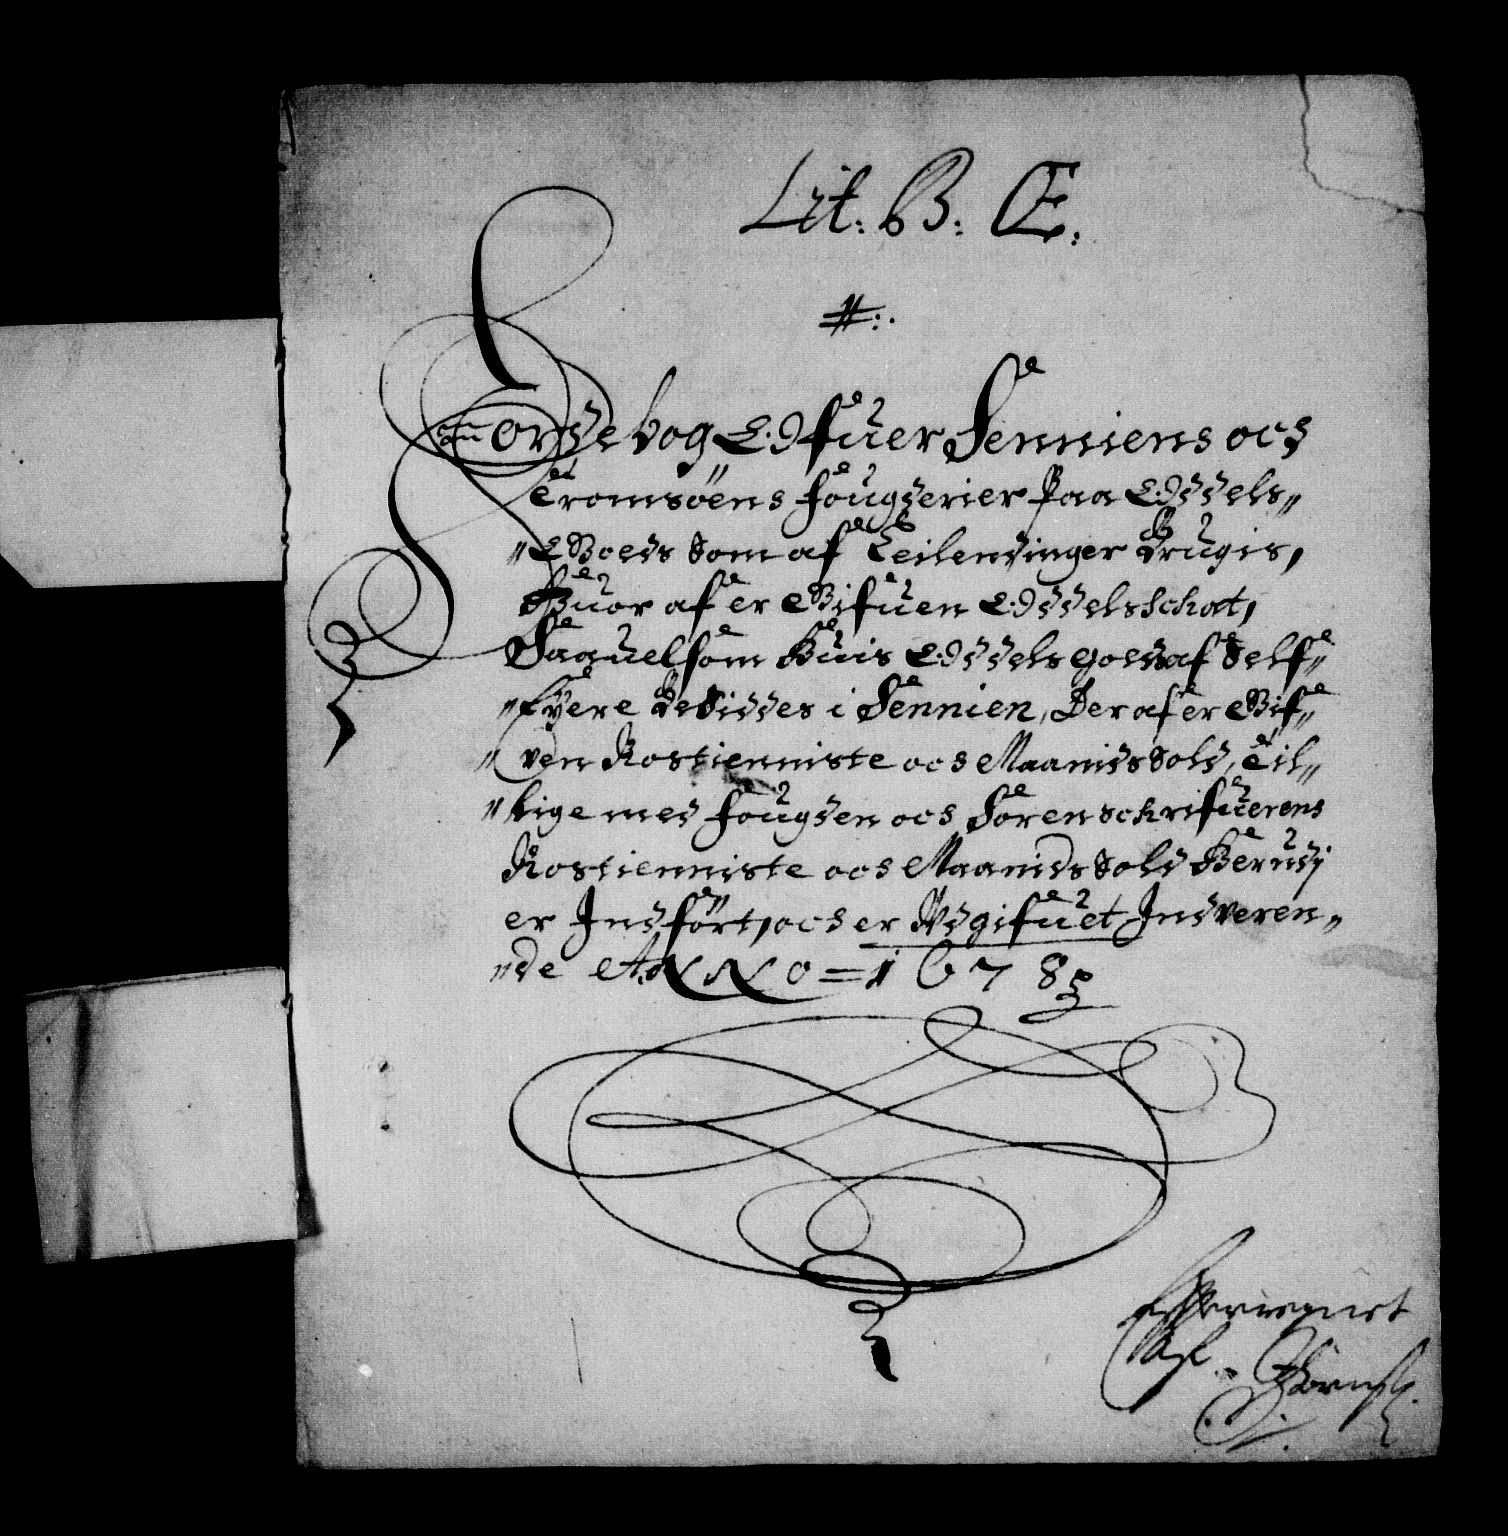 Lit: B: Æ:
#:.
Jordebog Offuer Senniens och
Tromsøens fougderier Paa Odels„
„Goeds Som af Teilendinger Brugis,
Huor af er Gifuen Odelsschat,
Saauelsom Huis Odels goeds af Self„
„Eyere Besiddes i Sennien, Der af er Gif„
„ven Rostienniste och Maanids Sold, Til„
„lige med fougden och Sorenschrifuerens
Rostienniste och Maanids Sold Herudj
er Indført, och er Udgifuet Indveren„
„de ANNO = 1678